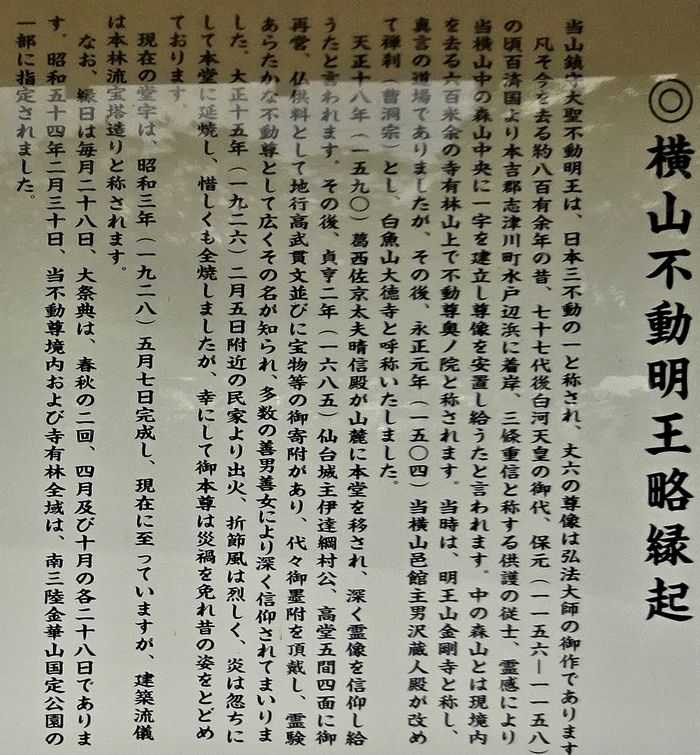 ◎横山不動明王略縁起
当山鎮守大聖不動明王は、日本三不動の一と称され、丈六の尊像は弘法大師の御作であります
凡そ今を去る約八百有余年の昔、七十七代後白河天皇の御代、保元（一一五六―一一五八）
の頃百済国より本吉郡志津川町水戸辺浜に着岸、三條重信と称する供護の従士、霊感により
当横山中の森山中央に一宇を建立し尊像を安置し給うたと言われます。中の森山とは現境内
を去る六百米余の寺有林山上で不動尊奥ノ院と称されます。当時は、明王山金剛寺と称し、
真言の道場でありましたが、その後、永正元年（一五〇四）当横山邑館主男沢蔵人殿が改め
て禅刹（曹洞宗）とし、白魚山大徳寺と呼称いたしました。
天正十八年（一五九〇）葛西佐京太夫晴信殿が山麓に本堂を移され、深く霊像を信仰し給
うたと言われます。その後、貞亨二年（一六八五）仙台城主伊達綱村公、高堂五間四面に御
再営、仏供料として地行高武貫文並びに宝物等の御寄附があり、代々御墨附を頂戴し、霊験
あらたかな不動尊として広くその名が知られ、多数の善男善女により深く信仰されてまいりま
した。大正十五年（一九二六）二月五日附近の民家より出火、折節風は烈しく、炎は忽ちに
して本堂に延焼し、惜しくも全焼しましたが、幸にして御本尊は災禍を免れ昔の姿をとどめ
ております。
現在の堂宇は、昭和三年（一九二八）五月七日完成し、現在に至っていますが、建築流儀
は本林流宝塔造りと称されます。
なお、縁日は毎月二十八日、大祭典は、春秋の二回、四月及び十月の各二十八日でありま
す。昭和五十四年二月三十日、当不動尊境内および寺有林全域は、南三陸金華山国定公園の
一部に指定されました。